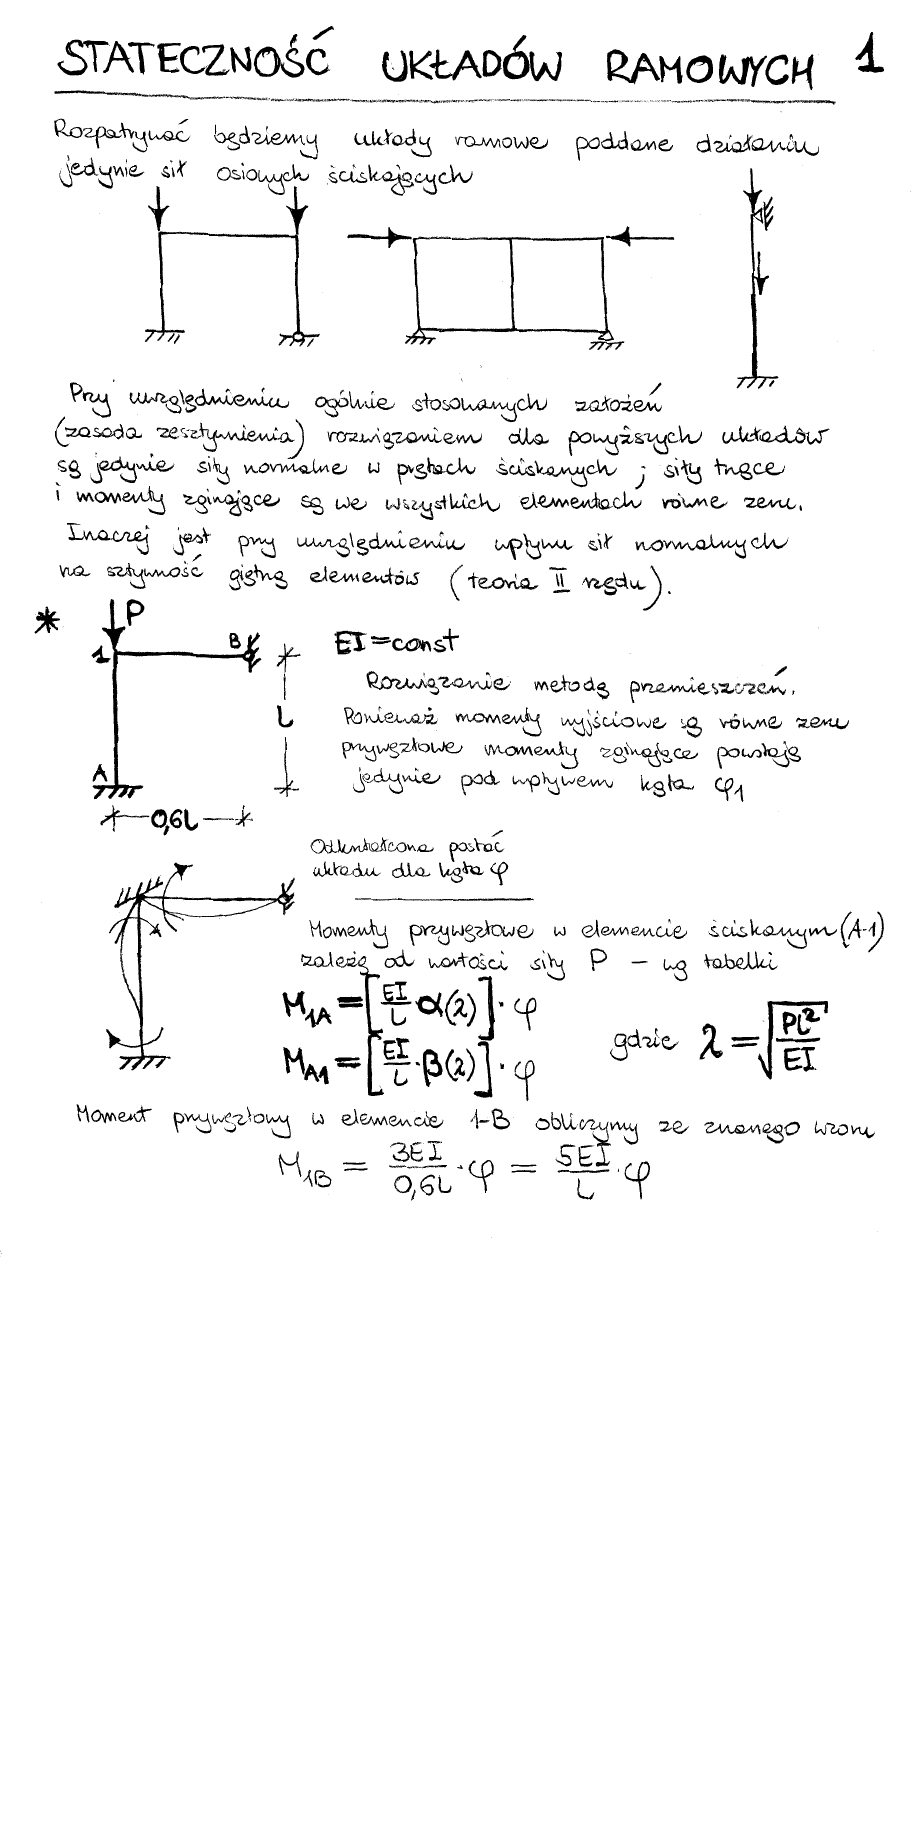 STATECZNOŚĆ UKŁADÓW RAMOWYCH 1
Rozpatrywać będziemy układy ramowe poddane działaniu
jedynie sił osiowych ściskających
Przy uwzględnieniu ogólnie stosowanych założeń
(zasada zesztywnienia) rozwiązaniem dla powyższych układów
są jedynie siły normalne w prętach ściskanych ; siły tnące
i momenty zginające są we wszystkich elementach równe zeru.
Inaczej jest przy uwzględnieniu wpływu sił normalnych
na sztywność giętną elementów (teoria II rzędu).
* P
1 B EI=const
Rozwiązanie metodą przemieszczeń.
L Ponieważ momenty wyjściowe są równe zeru
przywęzłowe momenty zginające powstają
A jedynie pod wpływem kąta φ1
0,6L
Odkształcona postać
układu dla kąta φ
Momenty przywęzłowe w elemencie ściskanym (A-1)
zależą od wartości siły P – wg tabelki
M1A = [EI/L · α(λ)] · φ
gdzie λ = √(PL²/EI)
MA1 = [EI/L · β(λ)] · φ
Moment przywęzłowy w elemencie 1-B obliczymy ze znanego wzoru
M1B = 3EI/0,6L · φ = 5EI/L · φ